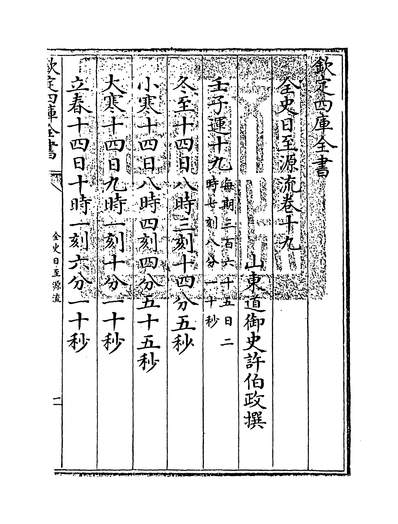 欽定四庫全書
全史日至源流卷十九
山東道御史許伯政撰
壬子運十九每期三百六十五日二
時七刻八分一十秒
冬至十四日八時三刻十四分五秒
小寒十四日八時四刻四分五十五秒
大寒十四日九時一刻十分一十秒
立春十四日十時一刻六分一十秒
欽定四庫全書
全史日至源流
一